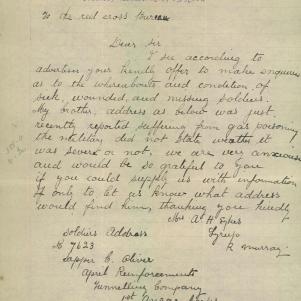 To the red cross Bureau
Dear Sir
I see according to
advertism your kindly offer to make enquiries
as to the whereabouts and condition of
sick, wounded, and missing soldiers.
My brother, address as below was just
recently reported suffering from gas poisoning,
the military did not state weather it
was severe or not, we are very anxious
and would be so grateful to you
if you could supply us with information
if only to let us know what address
would find him, thanking you kindly
Mrs A H
Soldiers Address
R Murray
No 7623
Sapper C. Oliver
April Reinforcements
Tunnelling Company
1st Anzac